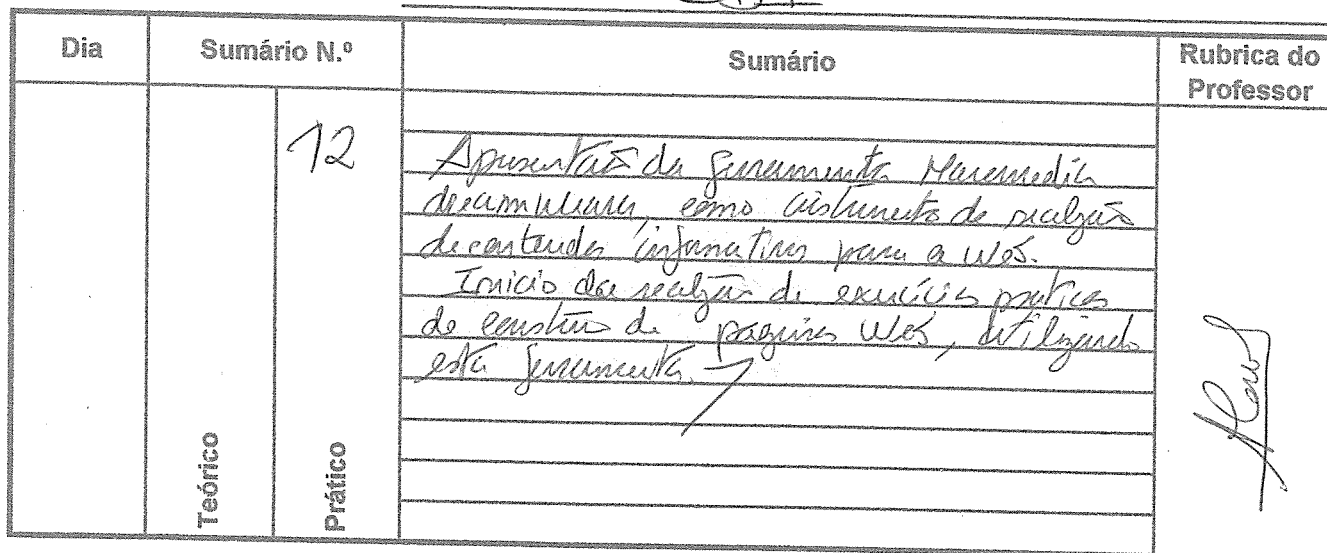 Dia
Sumário N.º
Sumário
Rubrica do
Professor
12
Apresentação da ferramenta Macromedia
dreamweaver, como instrumento de realização
de conteudos informativos para a Web.
Início da realização de exercícios práticos
de construção de paginas Web, utilizando
esta ferramenta.
Teórico
Prático